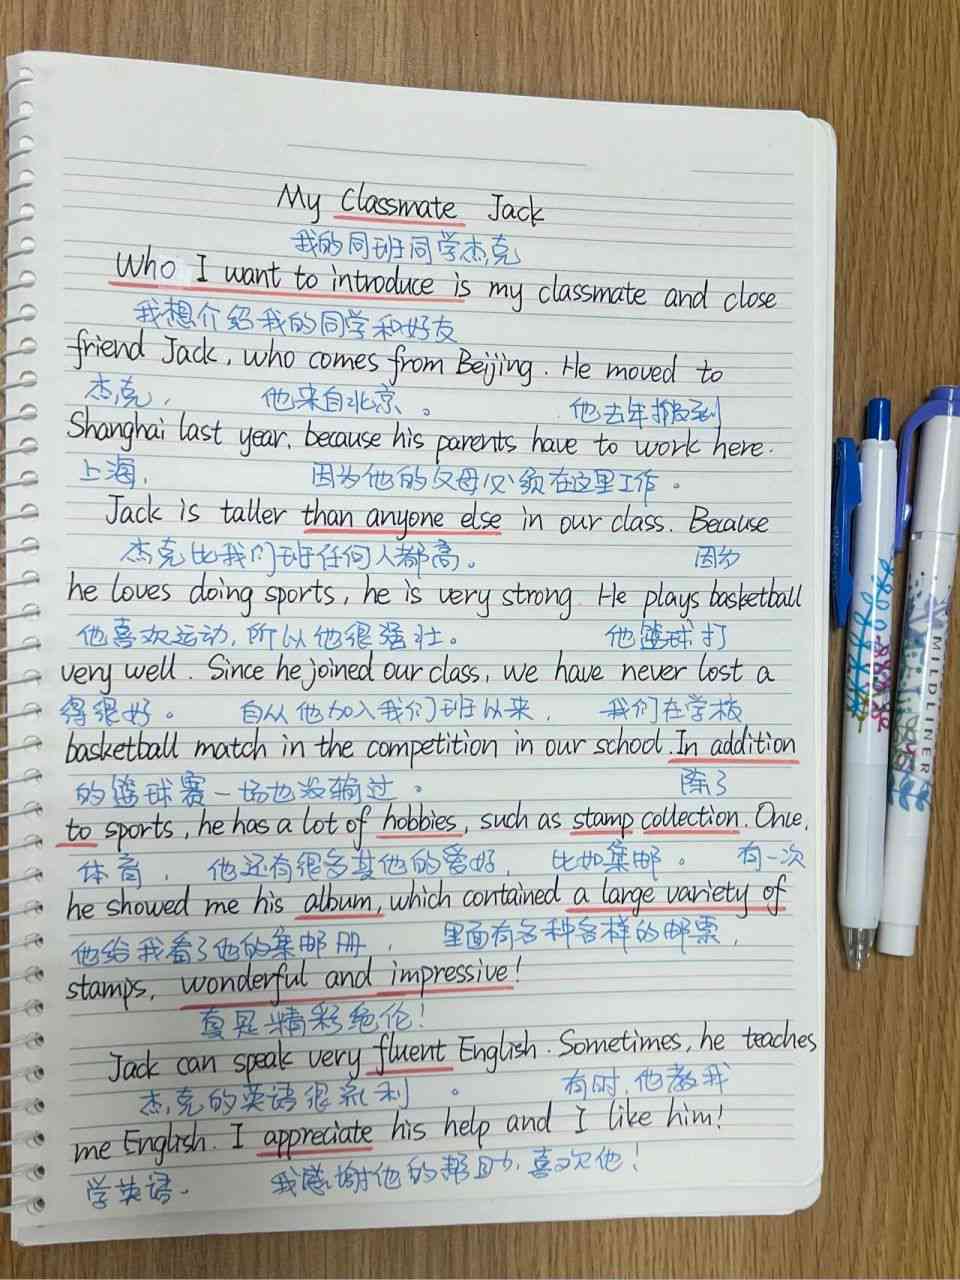 My Classmate Jack
我的同班同学杰克
Who I want to introduce is my classmate and close
我想介绍我的同学和好友
friend Jack, who comes from Beijing. He moved to
杰克, 他来自北京。 他去年搬到
Shanghai last year, because his parents have to work here.
上海, 因为他的父母必须在这里工作。
Jack is taller than anyone else in our class. Because
杰克比我们班任何人都高。 因为
he loves doing sports, he is very strong. He plays basketball
他喜欢运动,所以他很强壮。 他篮球打
very well. Since he joined our class, we have never lost a
得很好。 自从他加入我们班以来, 我们在学校
basketball match in the competition in our school. In addition
的篮球赛一场也没输过。 除了
to sports, he has a lot of hobbies, such as stamp collection. Once,
体育, 他还有很多其他的爱好, 比如集邮。 有一次
he showed me his album, which contained a large variety of
他给我看了他的集邮册, 里面有各种各样的邮票,
stamps, wonderful and impressive!
真是精彩绝伦!
Jack can speak very fluent English. Sometimes, he teaches
杰克的英语很流利 。 有时,他教我
me English. I appreciate his help and I like him!
学英语. 我感谢他的帮助,喜欢他!
MILDLINER